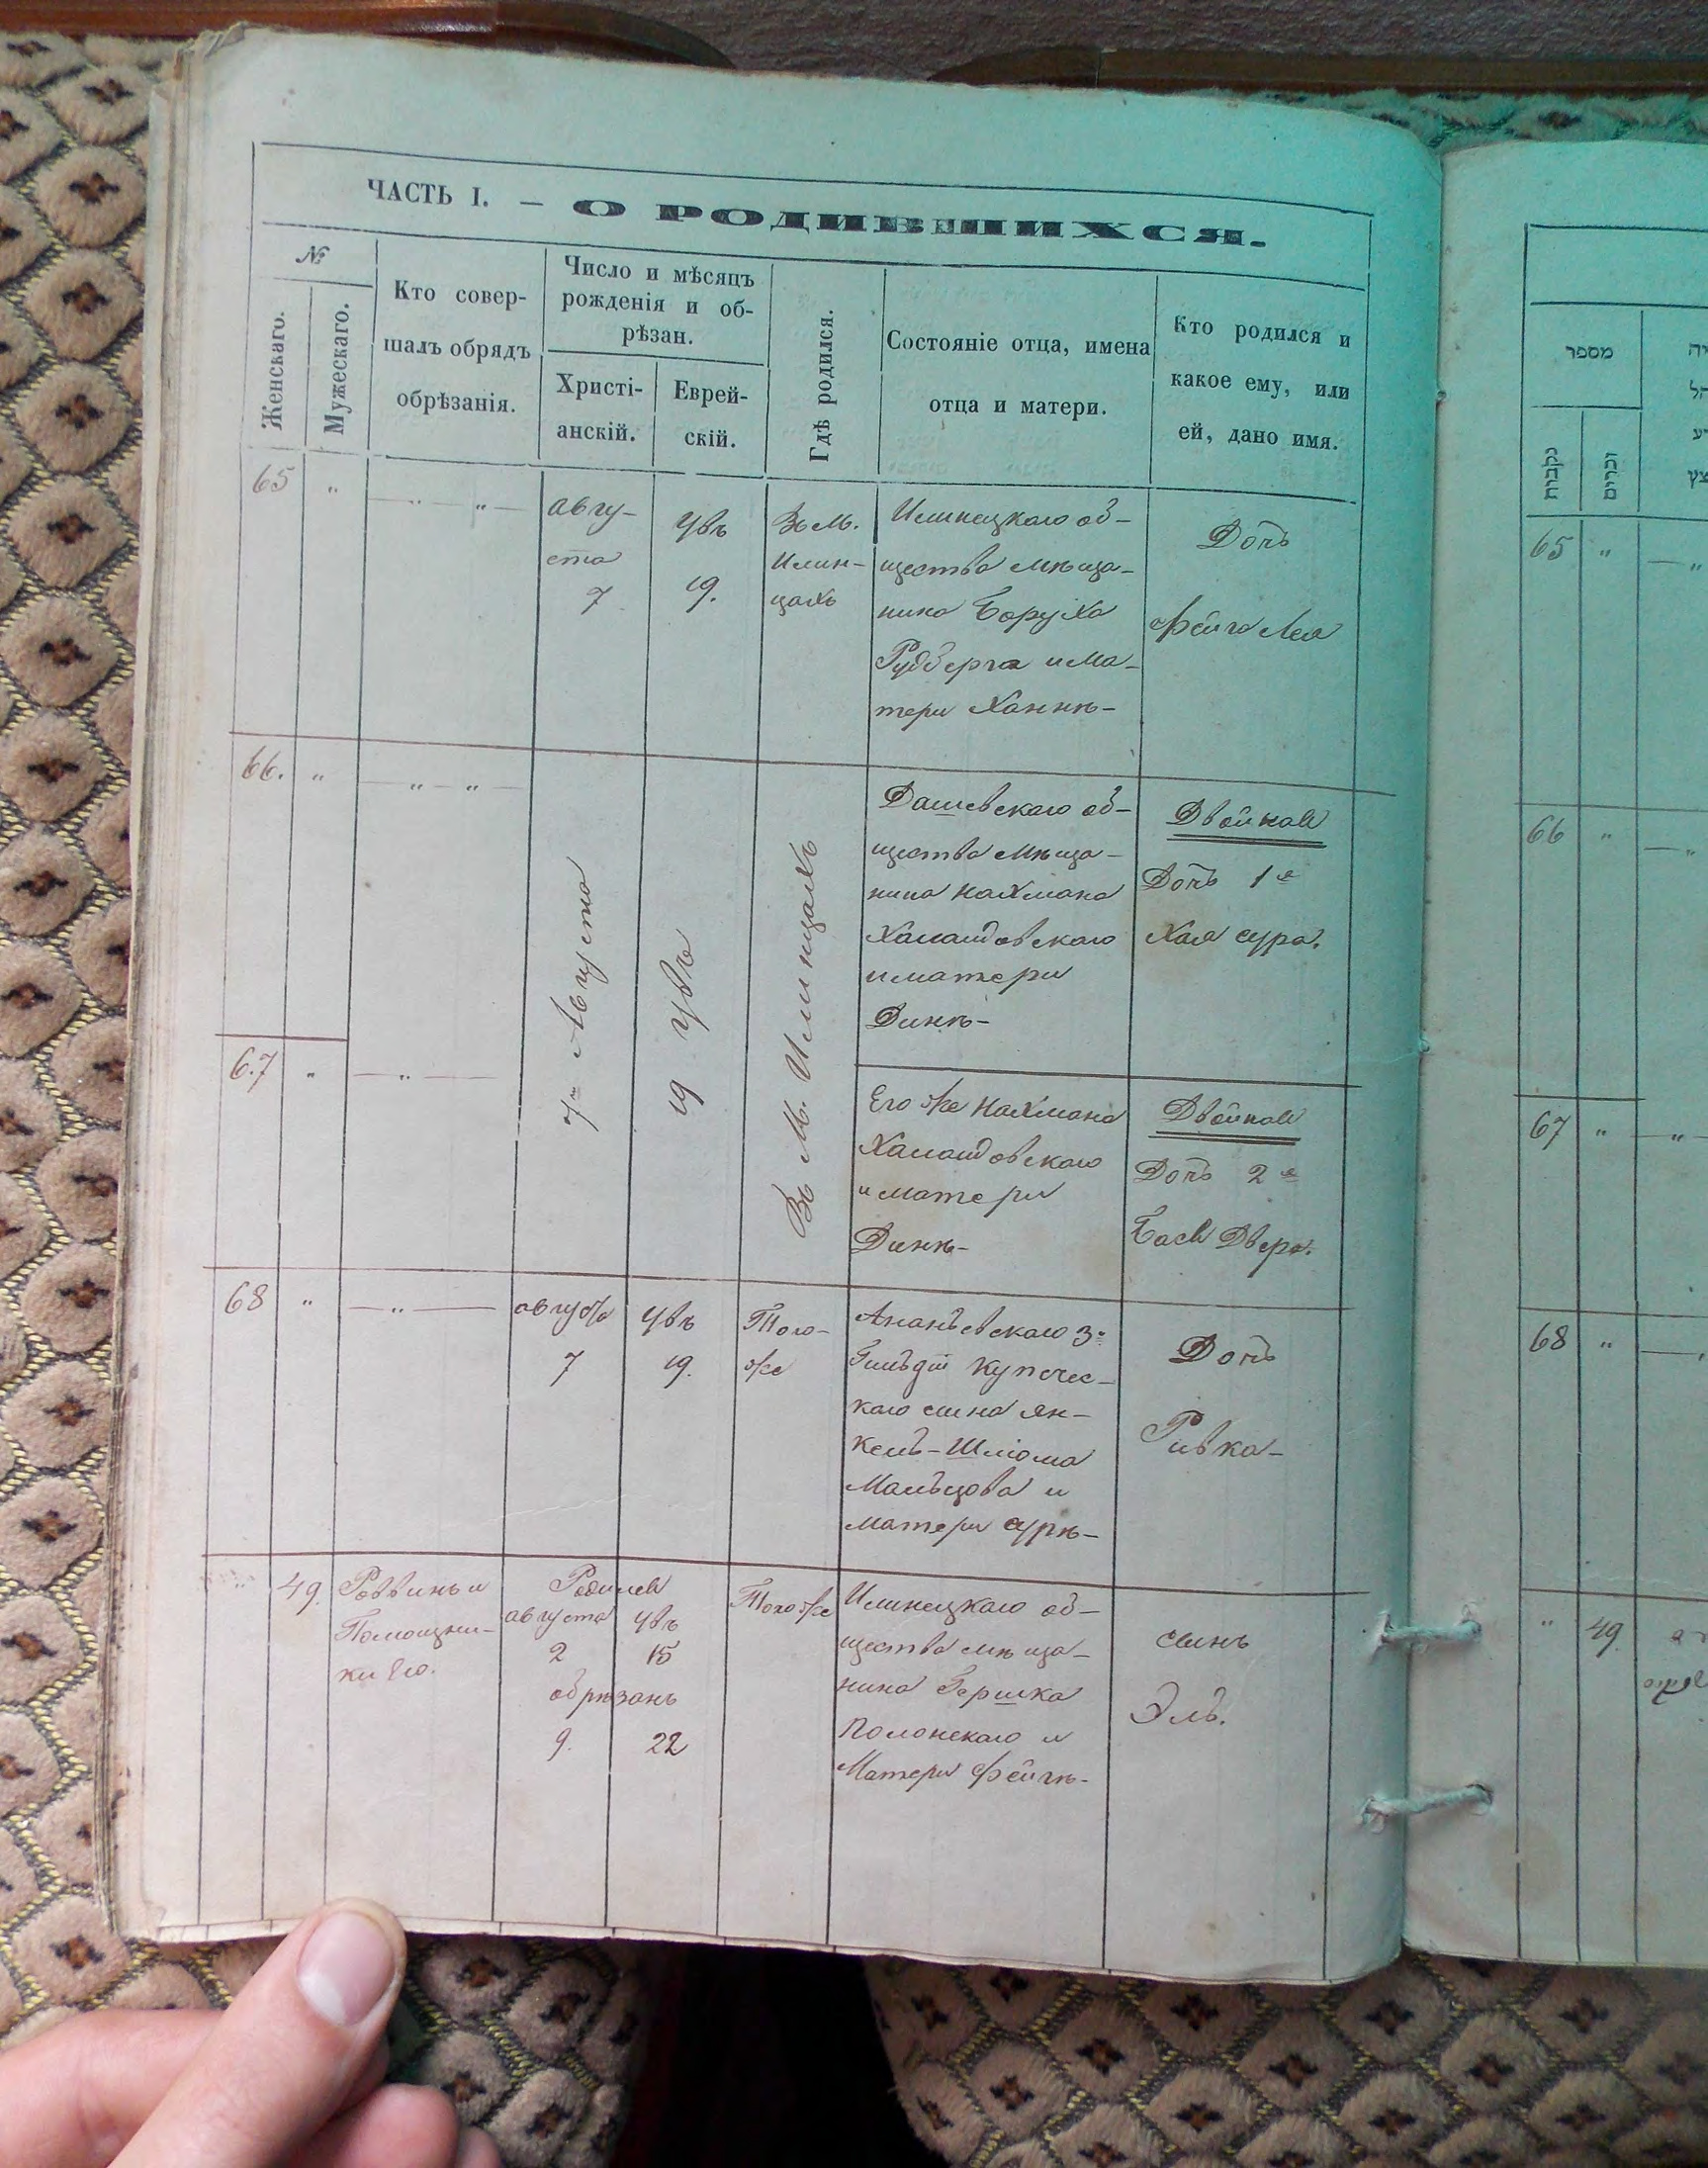 ЧАСТЬ I. — О РОДИВШИХСЯ.
№
Женскаго.
Мужескаго.
Кто совер-
шалъ обрядъ
обрѣзанія.
Число и мѣсяцъ
рожденія и об-
рѣзан.
Христі-
анскій.
Еврей-
скій.
Гдѣ родился.
Состояніе отца, имена
отца и матери.
Кто родился и
какое ему, или
ей, дано имя.
65 „ — „ —
авгу-
ста
7
Увъ
19.
Въ М.
Илин-
цахъ
Илинецкаго об-
щества мѣща-
нина Боруха
Рудберга и ма-
тери Ханнѣ-
Дочь
Фейга Лея
66. „ — „ — „ —
7го Августа
19 Увъ
Въ М. Илинцахъ
Дашевскаго об-
щества мѣща-
нина Нахмана
Халандовскаго
и матери
Динѣ-
Двойнай
Дочь 1я
Хая Сура.
67 „ — „ —
Его же Нахмана
Халандовскаго
и матери
Динѣ-
Двойнай
Дочь 2я
Бася Двера.
68 „ — „ —
августа
7
Увъ
19.
Того-
же
Ананьевскаго 3й
Гильдіи купечес-
каго сына Ян-
кель-Шліома
Мальцова и
матери Сурѣ-
Дочь
Ривка-
„ 49.
Раввинъ и
Помощни-
ки Его.
Родился
августа Увъ
2 15
обрѣзанъ
9. 22
Того же
Илинецкаго об-
щества мѣща-
нина Гершка
Полонскаго и
Матери Фейгѣ-
Сынъ
Эль.
מספר
נקבות
זכרים
65 „ — „
66 „ — „
67 „ — „
68 „ —
„ 49.